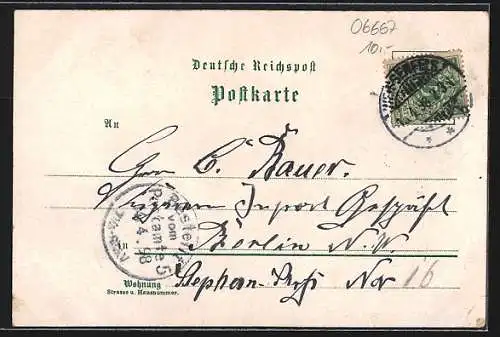 06667
10,-
Deutsche Reichspost
Postkarte
An
Herrn C. Bauer.
Import Geschäft
in Berlin N. W.
Stephan-Str. No 16
Wohnung
Strasse u. Hausnummer.
Bestellt
vom
Postamte 5
4.98